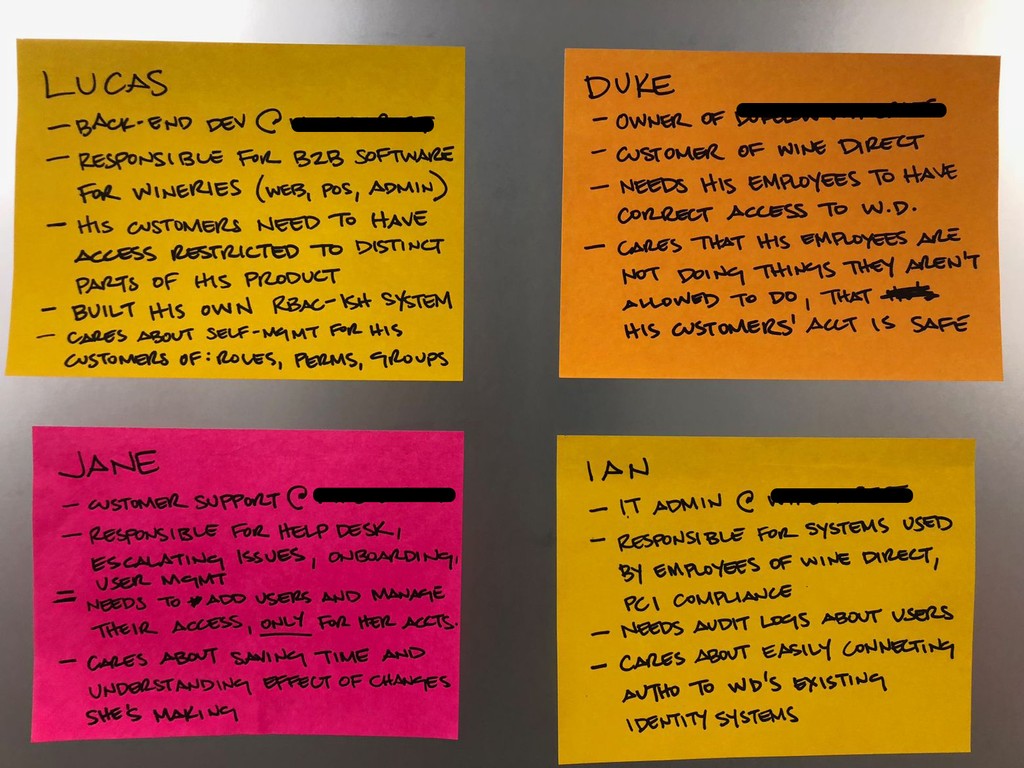 LUCAS
- BACK-END DEV @
- RESPONSIBLE FOR B2B SOFTWARE
FOR WINERIES (WEB, POS, ADMIN)
- HIS CUSTOMERS NEED TO HAVE
ACCESS RESTRICTED TO DISTINCT
PARTS OF HIS PRODUCT
- BUILT HIS OWN RBAC-ISH SYSTEM
- CARES ABOUT SELF-MGMT FOR HIS
CUSTOMERS OF: ROLES, PERMS, GROUPS
DUKE
- OWNER OF
- CUSTOMER OF WINE DIRECT
- NEEDS HIS EMPLOYEES TO HAVE
CORRECT ACCESS TO W.D.
- CARES THAT HIS EMPLOYEES ARE
NOT DOING THINGS THEY AREN'T
ALLOWED TO DO, THAT
HIS CUSTOMERS' ACCT IS SAFE
JANE
- CUSTOMER SUPPORT @
- RESPONSIBLE FOR HELP DESK,
ESCALATING ISSUES, ONBOARDING,
USER MGMT
= NEEDS TO ADD USERS AND MANAGE
THEIR ACCESS, ONLY FOR HER ACCTS.
- CARES ABOUT SAVING TIME AND
UNDERSTANDING EFFECT OF CHANGES
SHE'S MAKING
IAN
- IT ADMIN @
- RESPONSIBLE FOR SYSTEMS USED
BY EMPLOYEES OF WINE DIRECT,
PCI COMPLIANCE
- NEEDS AUDIT LOGS ABOUT USERS
- CARES ABOUT EASILY CONNECTING
AUTH0 TO WD'S EXISTING
IDENTITY SYSTEMS